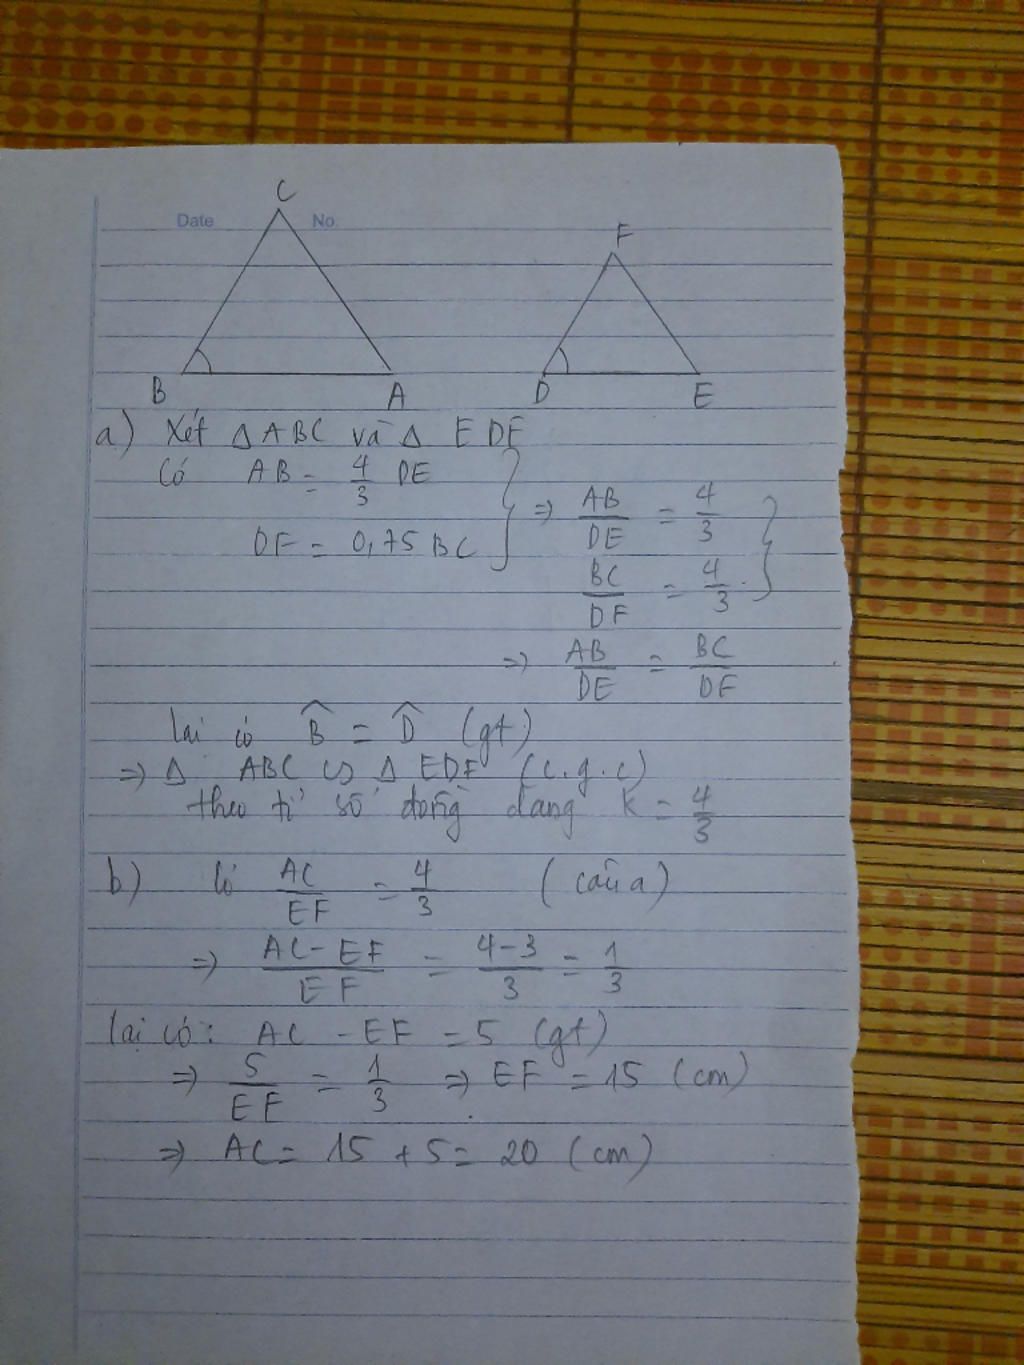 C
Date No.
F
B A D E
a) Xét Δ ABC và Δ EDF
Có AB = 4/3 DE
DF = 0,75 BC
=> AB/DE = 4/3
BC/DF = 4/3
=> AB/DE = BC/DF
lại có B̂ = D̂ (gt)
=> Δ ABC ∽ Δ EDF (c.g.c)
theo tỉ số đồng dạng k = 4/3
b) Có AC/EF = 4/3 (câu a)
=> AC-EF/EF = 4-3/3 = 1/3
lại có: AC - EF = 5 (gt)
=> 5/EF = 1/3 => EF = 15 (cm)
=> AC = 15 + 5 = 20 (cm)